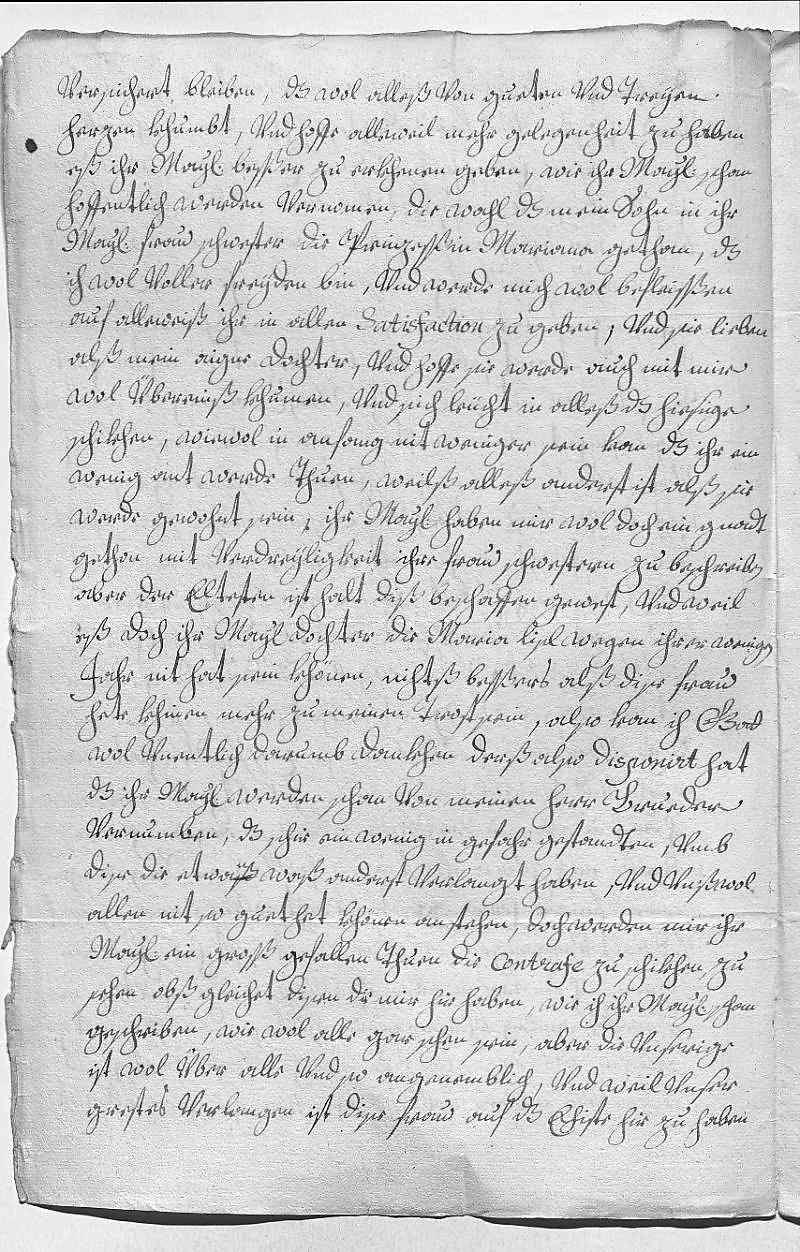 Versichert bleiben, dß wol alleß von gueten Vnd Treyen
herzen khumbt, Vnd hoffe alleweil mehr gelegenheit zu haben
eß ihr Mayl: beßer zu erkhenen geben, wie ihr Mayl: schon
hoffentlich werden Vernomen, die wahl dß mein Sohn in ihr
Mayl: frau schwester die Prinzessin Mariana gethan, dß
ich wol Voller freyden bin, Vnd werde mich wol befleissen
auf alleweiß ihr in allen Satisfaction zu geben, Vnd sie lieben
alß mein aigne Dochter, Vnd hoffe sie werde auch mit mir
wol Übereinß khumen, Vnd sich leicht in alleß dß hiesige
schikhen, wiewol in anfang nit weniger sein kan dß ihr ein
wenig ant werde Thuen, weilß alleß anderst ist alß sie
werde gewohnt sein, ihr Mayl: haben mir wol doch ein gnadt
gethan mit Verdreyligkeit ihre frau schwestern zu beschreiben
aber der Eltesten ist halt diß beschaffen gewest, Vnd weil
eß doch ihr Mayl Dochter die Maria lisl wegen ihrer wenigen
Jahr nit hat sein khönen, nichtß bessers alß dise frau
hete khinen mehr zu meinen Trost sein, also kan ich Gott
wol Vnentlich darumb dankhen derß also disponirt hat
dß ihr Mayl: werden schon Von meinen herr Brueder
Vernumben, dß schir ein wenig in gefahr gestandten, Vmb
dise die etwaß anderst Verlangt haben, Vnd Vnß wol
allen nit so guet het khönen anstehen, doch werden mir ihr
Mayl: ein groß gefallen Thuen die Contrafe zu schikhen, zu
sehen obß gleichet disen die mir hie haben, wie ich ihr Mayl: schon
geschriben, wie wol alle gar schen sein, aber die Vnserige
ist wol Über alle Vnd so angenemblich, Vnd weil Vnser
grestes Verlangen ist dise frau auf dß Ehiste hir zu haben